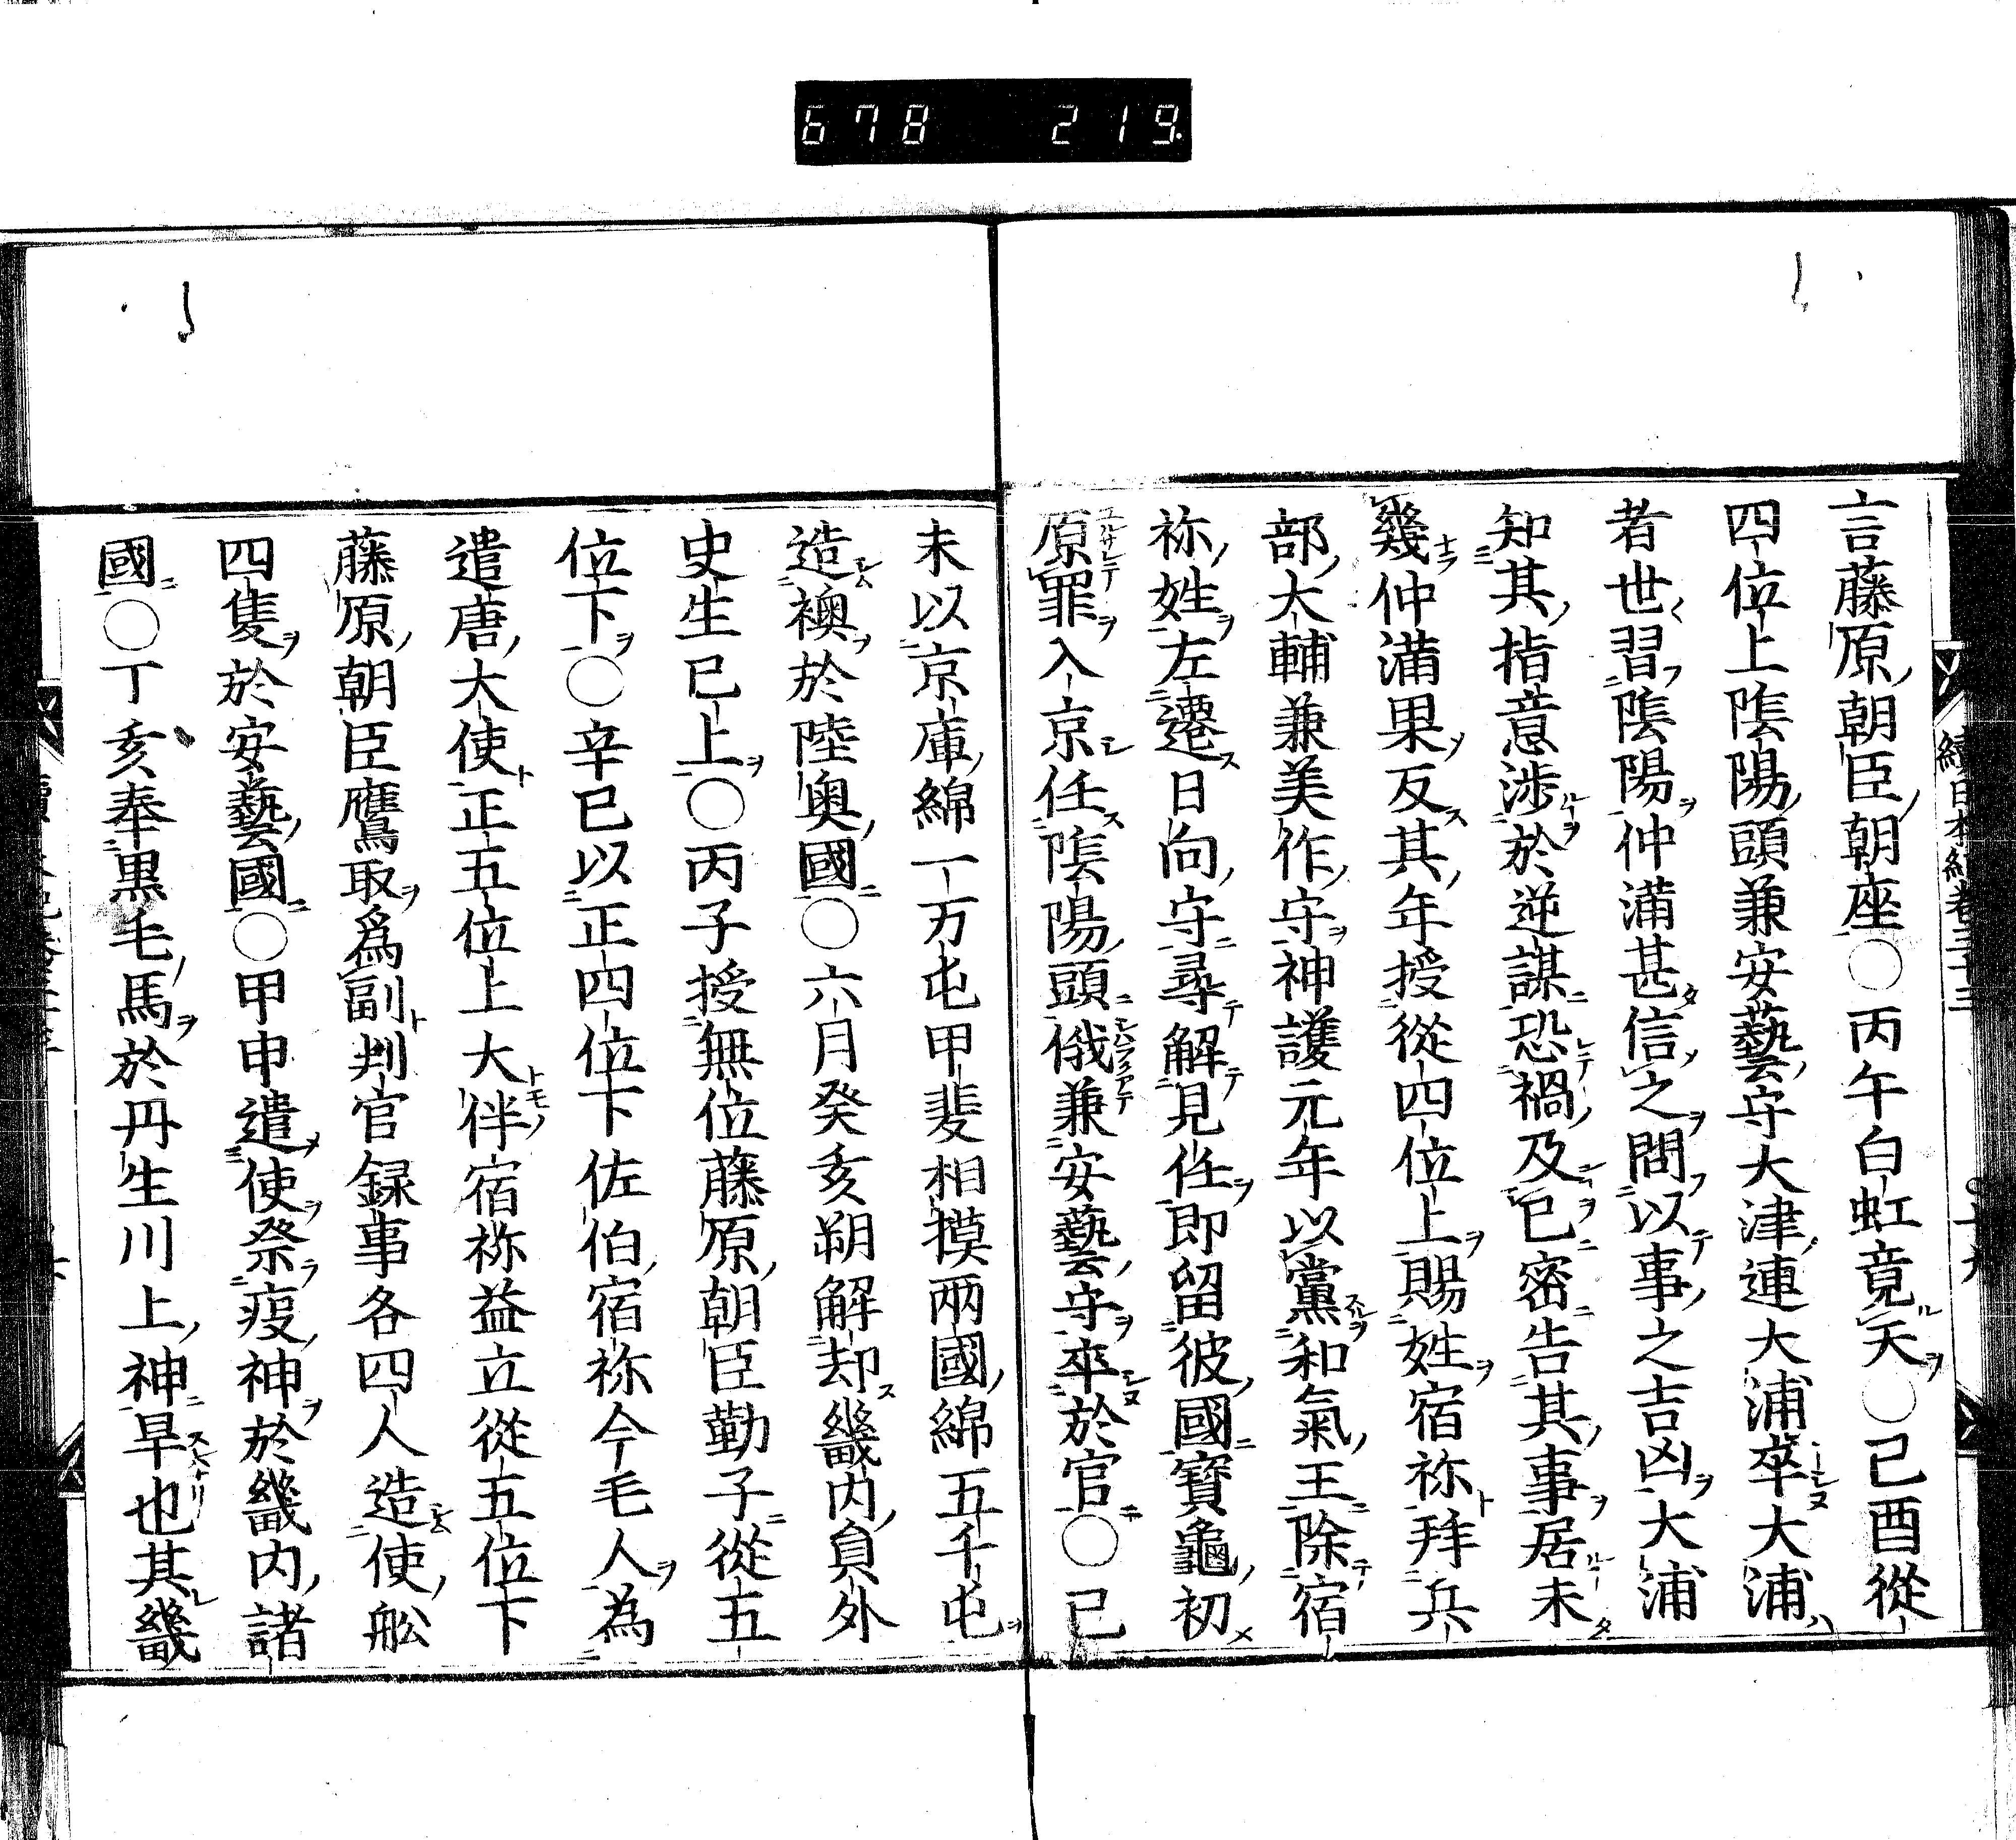 678 219.
言藤原朝臣朝座〇丙午白虹竟天〇己酉從
四位上陰陽頭兼安藝守大津連大浦卒大浦
者世習陰陽仲滿甚信之問以事之吉凶大浦
知其指意涉於逆謀恐禍及己密告其事居未
幾仲滿果反其年授從四位上賜姓宿祢拜兵
部大輔兼美作守神護元年以黨和氣王除宿
祢姓左遷日向守尋解見任即留彼國寶龜初
原罪入京任陰陽頭俄兼安藝守卒於官〇己
未以京庫綿一万屯甲斐相摸兩國綿五千屯
造襖於陸奧國〇六月癸亥朔解却畿内員外
史生已上〇丙子授無位藤原朝臣勤子從五
位下〇辛巳以正四位下佐伯宿祢今毛人為
遣唐大使正五位上大伴宿祢益立從五位下
藤原朝臣鷹取爲副判官録事各四人造使舩
四隻於安藝國〇甲申遣使祭疫神於畿内諸
國〇丁亥奉黒毛馬於丹生川上神旱也其畿